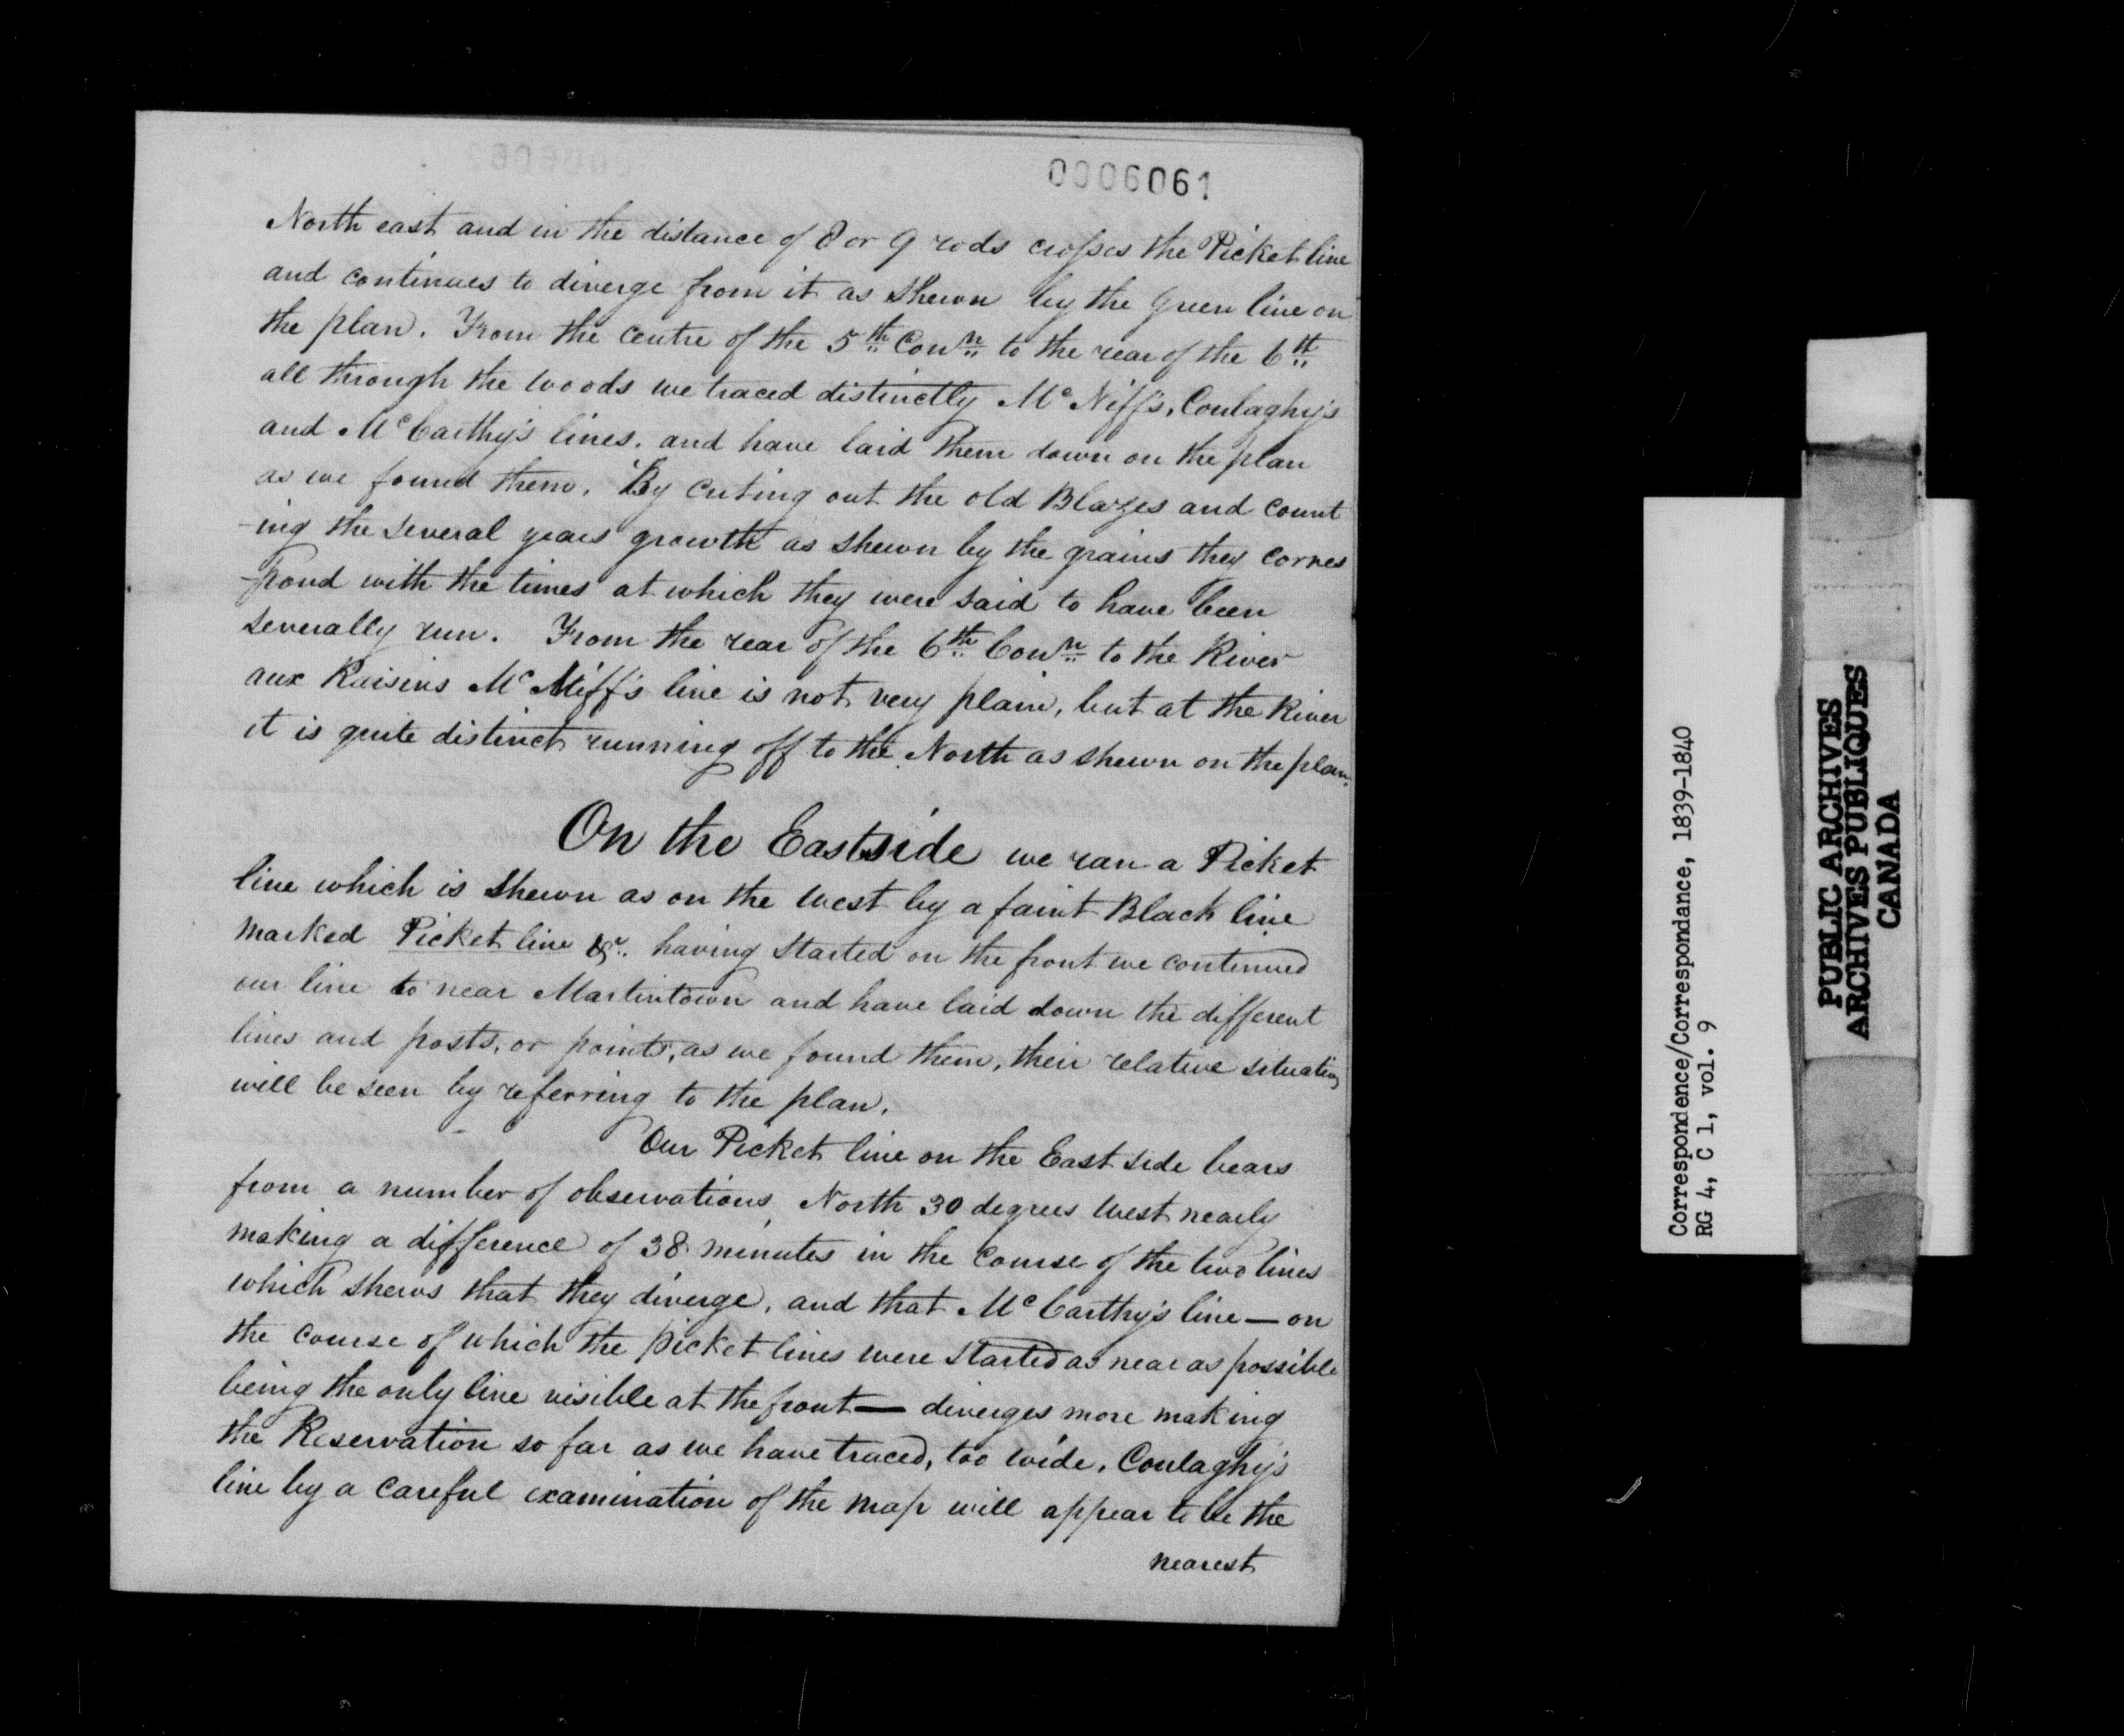 0006061
North east and in the distance of 8 or 9 rods crosses the Picket line
and continues to diverge from it as shewn by the Green line on
the plan. From the centre of the 5th Conn to the rear of the 6th
all through the woods we traced distinctly McNiff's, Coulaghy's
and McCarthy's lines, and have laid them down on the plan
as we found them. By cuting out the old Blazes and count
-ing the several years growth as shewn by the grains they corres
-pond with the times at which they were said to have been
severally run. From the rear of the 6th Conn to the River
aux Raisins McNiff's line is not very plain, but at the River
it is quite distinct running off to the North as shewn on the plan.
On the Eastside we ran a Picket
line which is shewn as on the West by a faint Black line
marked Picket line &c. having started on the front we continued
our line to near Martintown and have laid down the different
lines and posts, or points, as we found them, their relative situation
will be seen by referring to the plan.
Our Picket line on the East side bears
from a number of observations North 30 degrees West nearly
making a difference of 38 minutes in the course of the two lines
which shews that they diverge, and that McCarthy's line — on
the course of which the picket lines were started as near as possible
being the only line visible at the front — diverges more making
the Reservation so far as we have traced, too wide. Coulaghy's
line by a careful examination of the map will appear to be the
nearest
Correspondence/Correspondance, 1839-1840
RG 4, C 1, vol. 9
PUBLIC ARCHIVES
ARCHIVES PUBLIQUES
CANADA